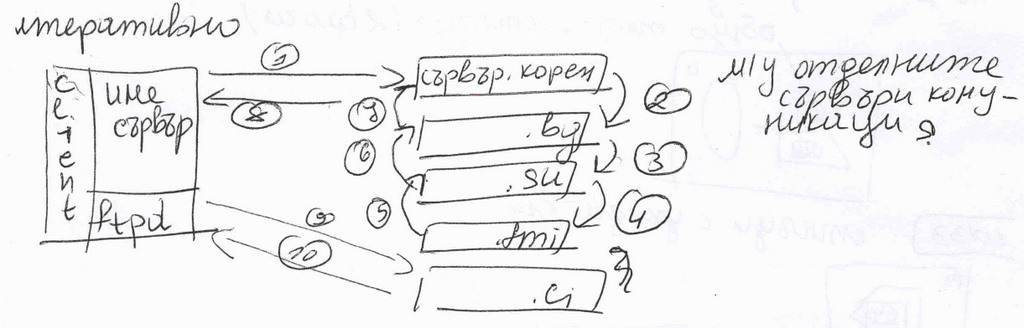 итеративно
client
име
сървър
ftpd
1
8
9
10
сървър.корен
.bg
.su
.fmi
.ci
7
6
5
2
3
4
м/у отделните
сървъри кому-
никаци